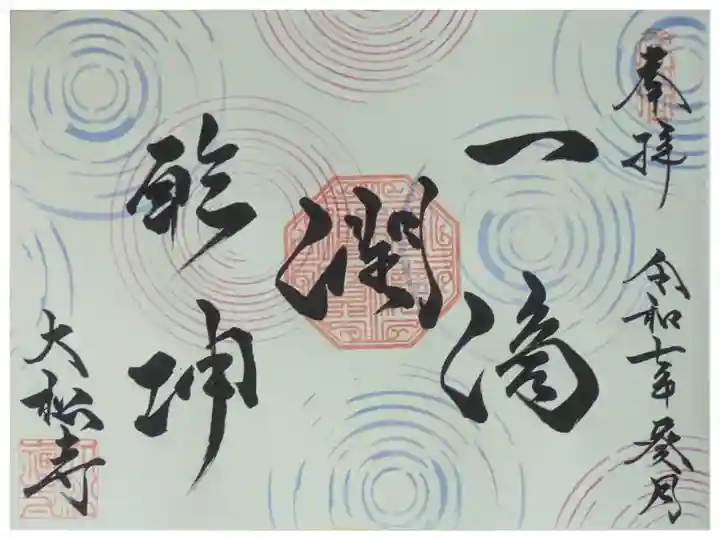 奉拝 令和七年 癸月
一滴
潤
乾坤
大松寺